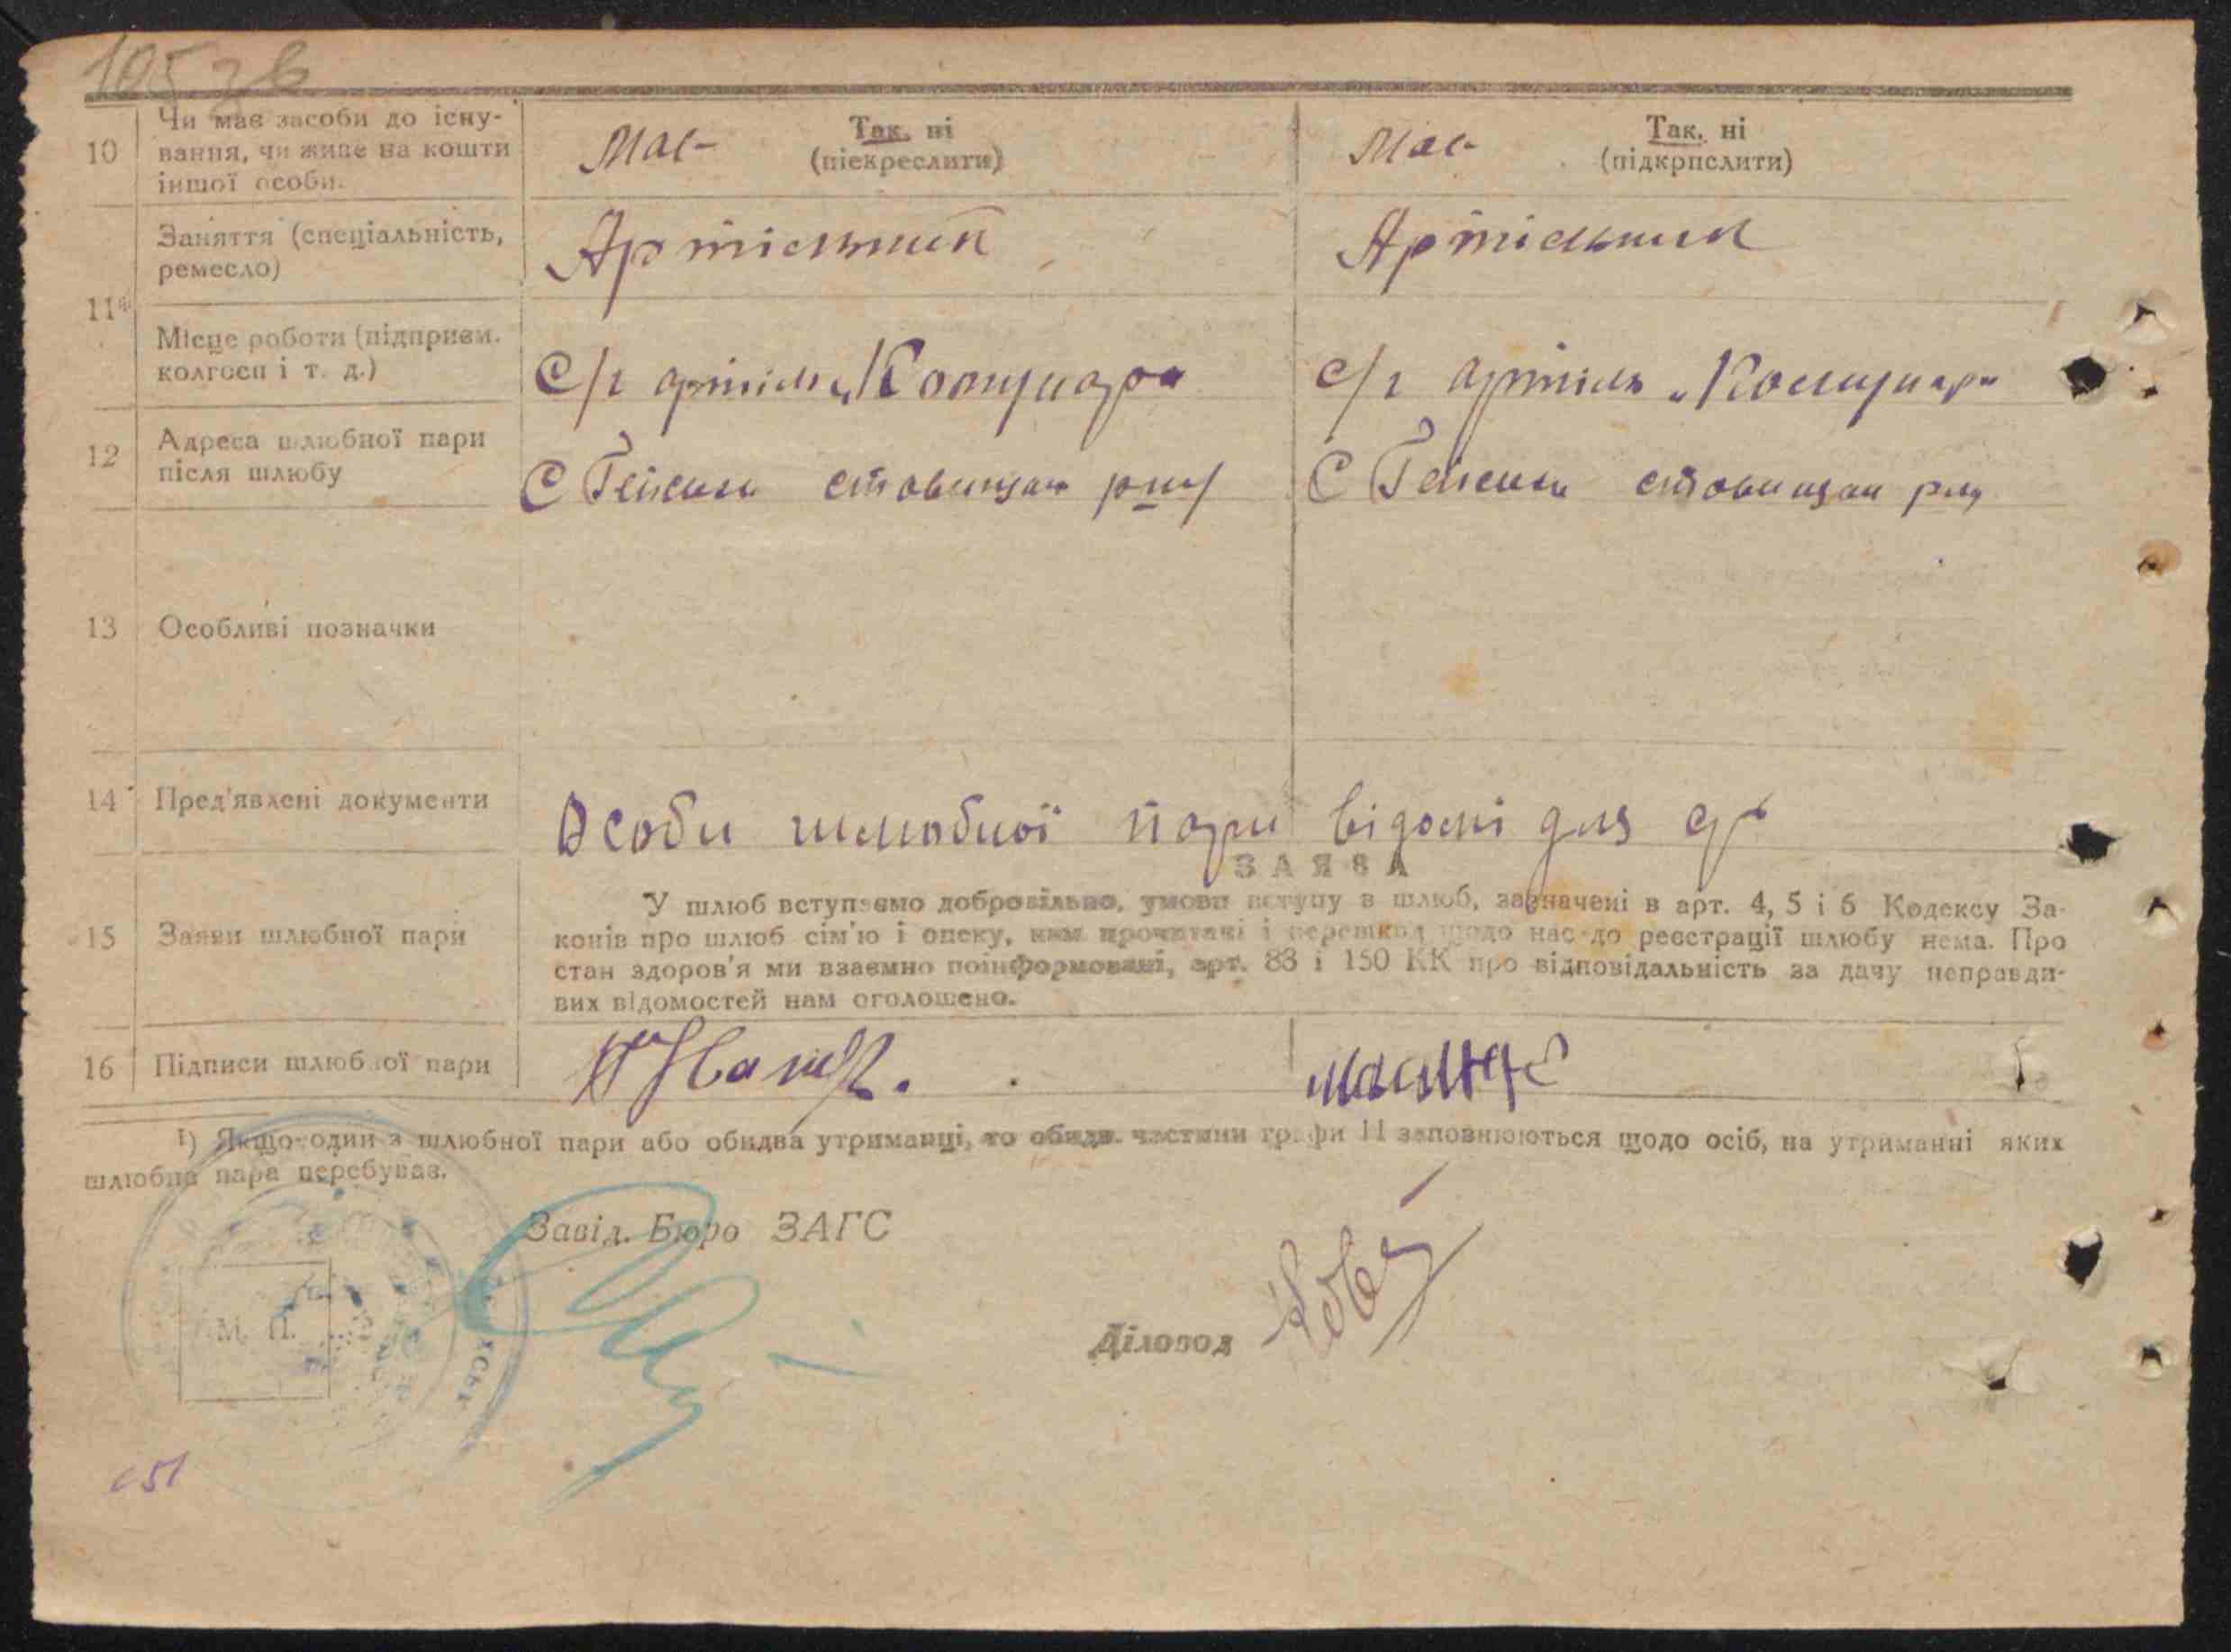 105зв
10 Чи має засоби до існу-
вання, чи живе на кошти
іншої особи.
Має Так, ні
(піекреслити)
Має Так, ні
(підкрпслити)
11
Заняття (спеціальність,
ремесло)
Артільник
Артільник
Місце роботи (підприєм.
колгосп і т. д.)
С/г артіль „Комунара
с/г артіль „Комунар"
12 Адреса шлюбної пари
після шлюбу
С Гейсиха ставищан рну
С Гейсиха ставищан рну
13 Особливі позначки
14 Пред'явлені документи
Особи шлюбної пари відомі для с/р
ЗАЯВА
15 Заяви шлюбної пари
У шлюб вступаємо добровільно, умови вступу в шлюб, зазначені в арт. 4, 5 і 6 Кодексу За-
конів про шлюб сім'ю і опеку, нам прочитані і перешкод щодо нас до реєстрації шлюбу нема. Про
стан здоров'я ми взаємно поінформовані, арт. 83 і 150 КК про відповідальність за дачу неправди-
вих відомостей нам оголошено.
16 Підписи шлюбної пари
1) Якщо один з шлюбної пари або обидва утриманці, то обидв. частини графи 11 заповнюються щодо осіб, на утриманні яких
шлюбна пара перебуває.
Завід. Бюро ЗАГС
М. П.
Діловод
151